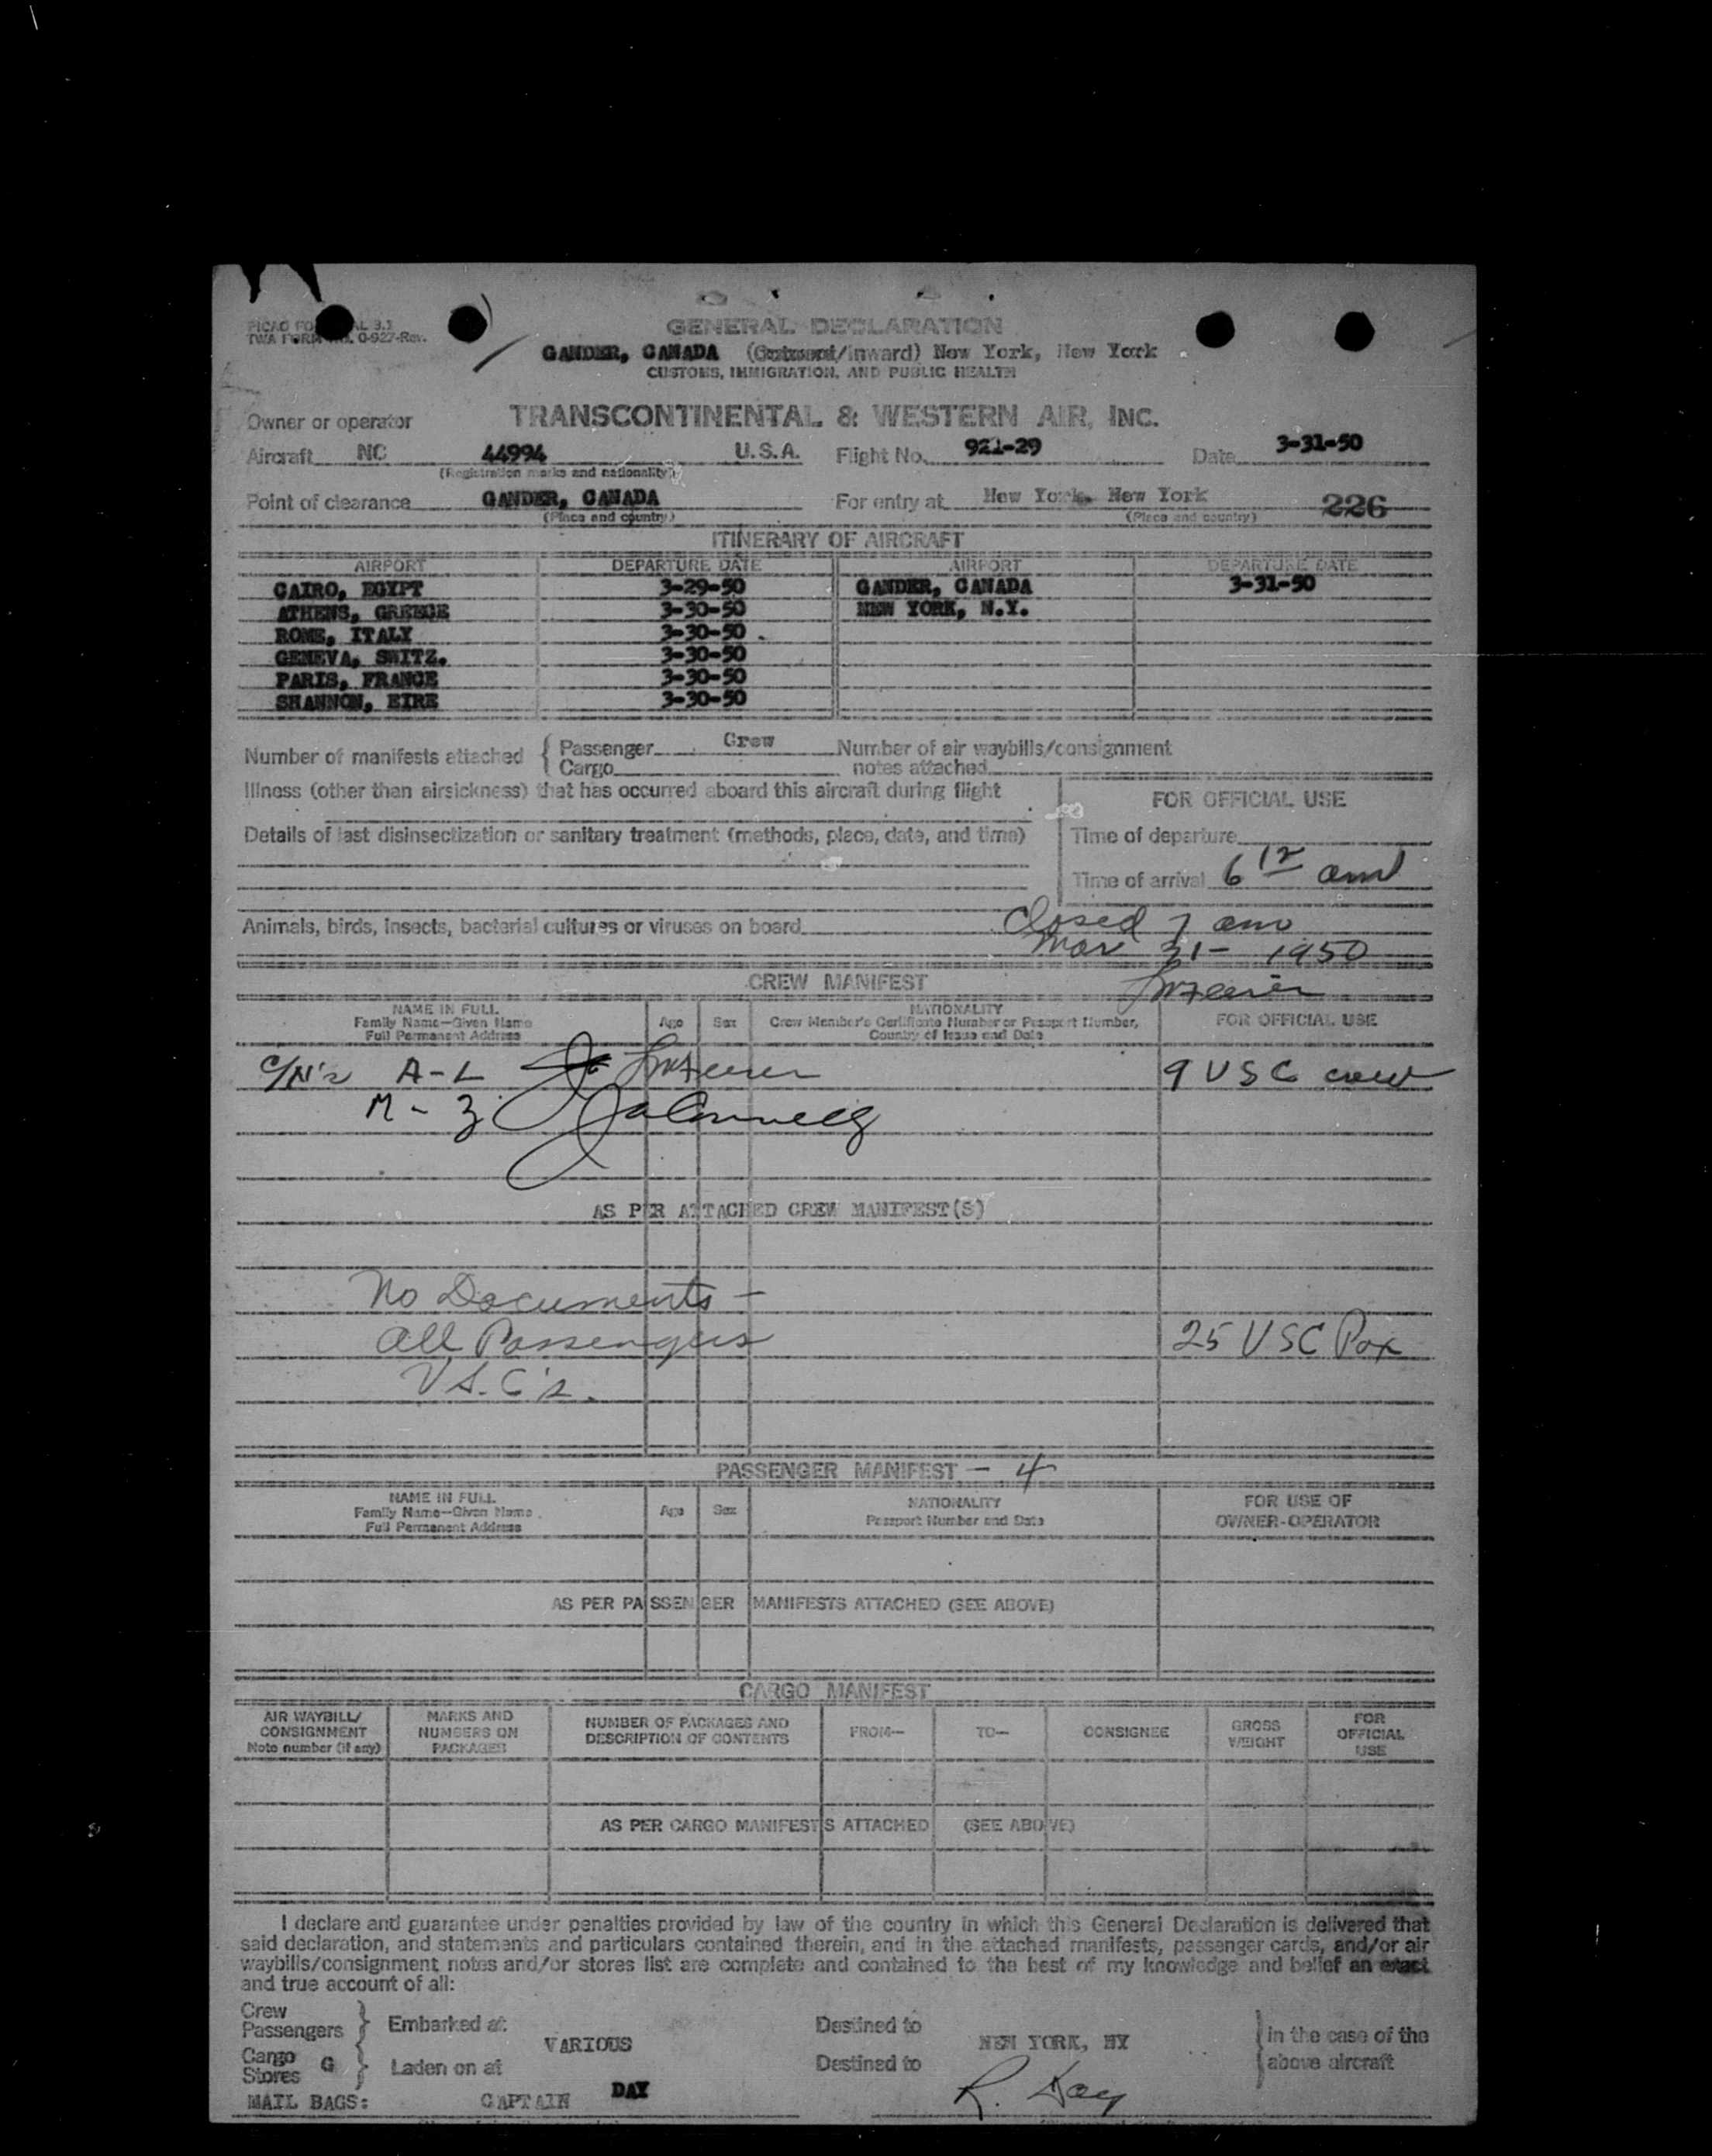 GENERAL DECLARATION
GANDER, CANADA (Outward/Inward) New York, New York
CUSTOMS, IMMIGRATION, AND PUBLIC HEALTH
TWA FORM No. 0-927-Rev.
Owner or operator TRANSCONTINENTAL & WESTERN AIR, INC.
Aircraft NC 44994 U.S.A. Flight No. 921-29 Date 3-31-50
(Registration marks and nationality)
Point of clearance GANDER, CANADA For entry at New York, New York 226
(Place and country) (Place and country)
ITINERARY OF AIRCRAFT
AIRPORT DEPARTURE DATE AIRPORT DEPARTURE DATE
CAIRO, EGYPT 3-29-50 GANDER, CANADA 3-31-50
ATHENS, GREECE 3-30-50 NEW YORK, N.Y.
ROME, ITALY 3-30-50
GENEVA, SWITZ. 3-30-50
PARIS, FRANCE 3-30-50
SHANNON, EIRE 3-30-50
Number of manifests attached { Passenger Crew Number of air waybills/consignment
Cargo notes attached
Illness (other than airsickness) that has occurred aboard this aircraft during flight
FOR OFFICIAL USE
Details of last disinsectization or sanitary treatment (methods, place, date, and time)
Time of departure
Time of arrival 6 12 am
Animals, birds, insects, bacterial cultures or viruses on board
Closed 7 am
Mar 31- 1950
CREW MANIFEST
NAME IN FULL Age Sex NATIONALITY FOR OFFICIAL USE
Family Name—Given Name Crew Member's Certificate Number or Passport Number,
Full Permanent Address Country of Issue and Date
C/N's A-L 9 USC crew
M-Z
AS PER ATTACHED CREW MANIFEST(S)
No Documents -
All Passengers 25 USC Pax
U.S.C's.
PASSENGER MANIFEST - 4
NAME IN FULL Age Sex NATIONALITY FOR USE OF
Family Name—Given Name Passport Number and Date OWNER-OPERATOR
Full Permanent Address
AS PER PASSENGER MANIFESTS ATTACHED (SEE ABOVE)
CARGO MANIFEST
AIR WAYBILL/ MARKS AND NUMBER OF PACKAGES AND FROM— TO— CONSIGNEE GROSS FOR
CONSIGNMENT NUMBERS ON DESCRIPTION OF CONTENTS WEIGHT OFFICIAL
Note number (if any) PACKAGES USE
AS PER CARGO MANIFESTS ATTACHED (SEE ABOVE)
I declare and guarantee under penalties provided by law of the country in which this General Declaration is delivered that
said declaration, and statements and particulars contained therein, and in the attached manifests, passenger cards, and/or air
waybills/consignment notes and/or stores list are complete and contained to the best of my knowledge and belief an exact
and true account of all:
Crew
Passengers } Embarked at VARIOUS Destined to NEW YORK, NY } in the case of the
Cargo
Stores G } Laden on at Destined to above aircraft
MAIL BAGS: CAPTAIN DAY R. Day